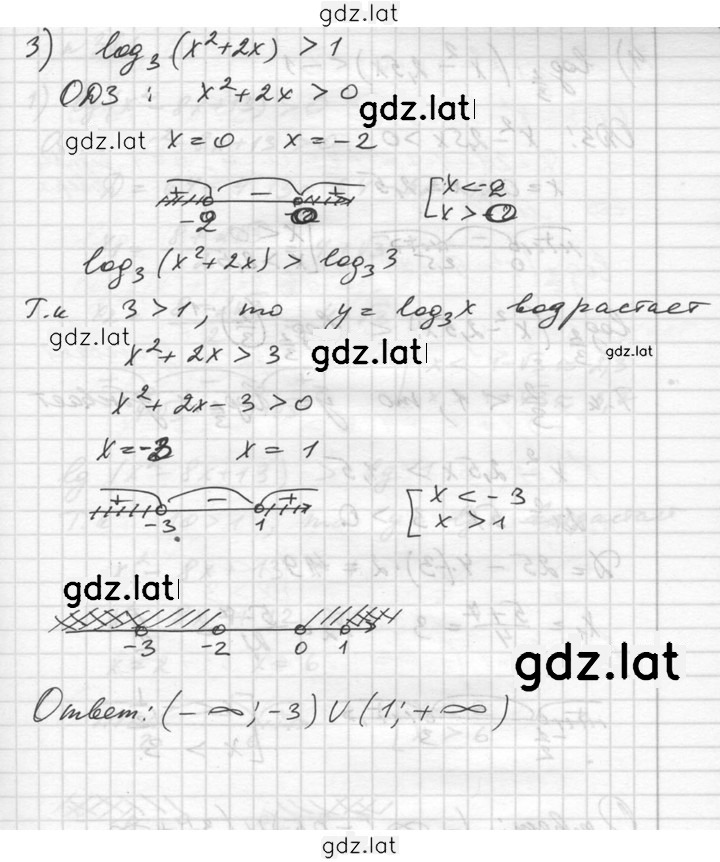 gdz.lat
3) log₃(x²+2x) > 1
ОДЗ: x²+2x > 0
gdz.lat
gdz.lat x=0 x=-2
+ − + [ x<-2
-2 0 x>0
log₃(x²+2x) > log₃3
Т.к 3>1, то y=log₃x возрастает
gdz.lat
x²+2x > 3 gdz.lat gdz.lat
x²+2x-3>0
x=-3 x=1
+ − + [ x<-3
-3 1 x>1
gdz.lat
-3 -2 0 1
gdz.lat
Ответ: (-∞; -3) ∪ (1; +∞)
gdz.lat